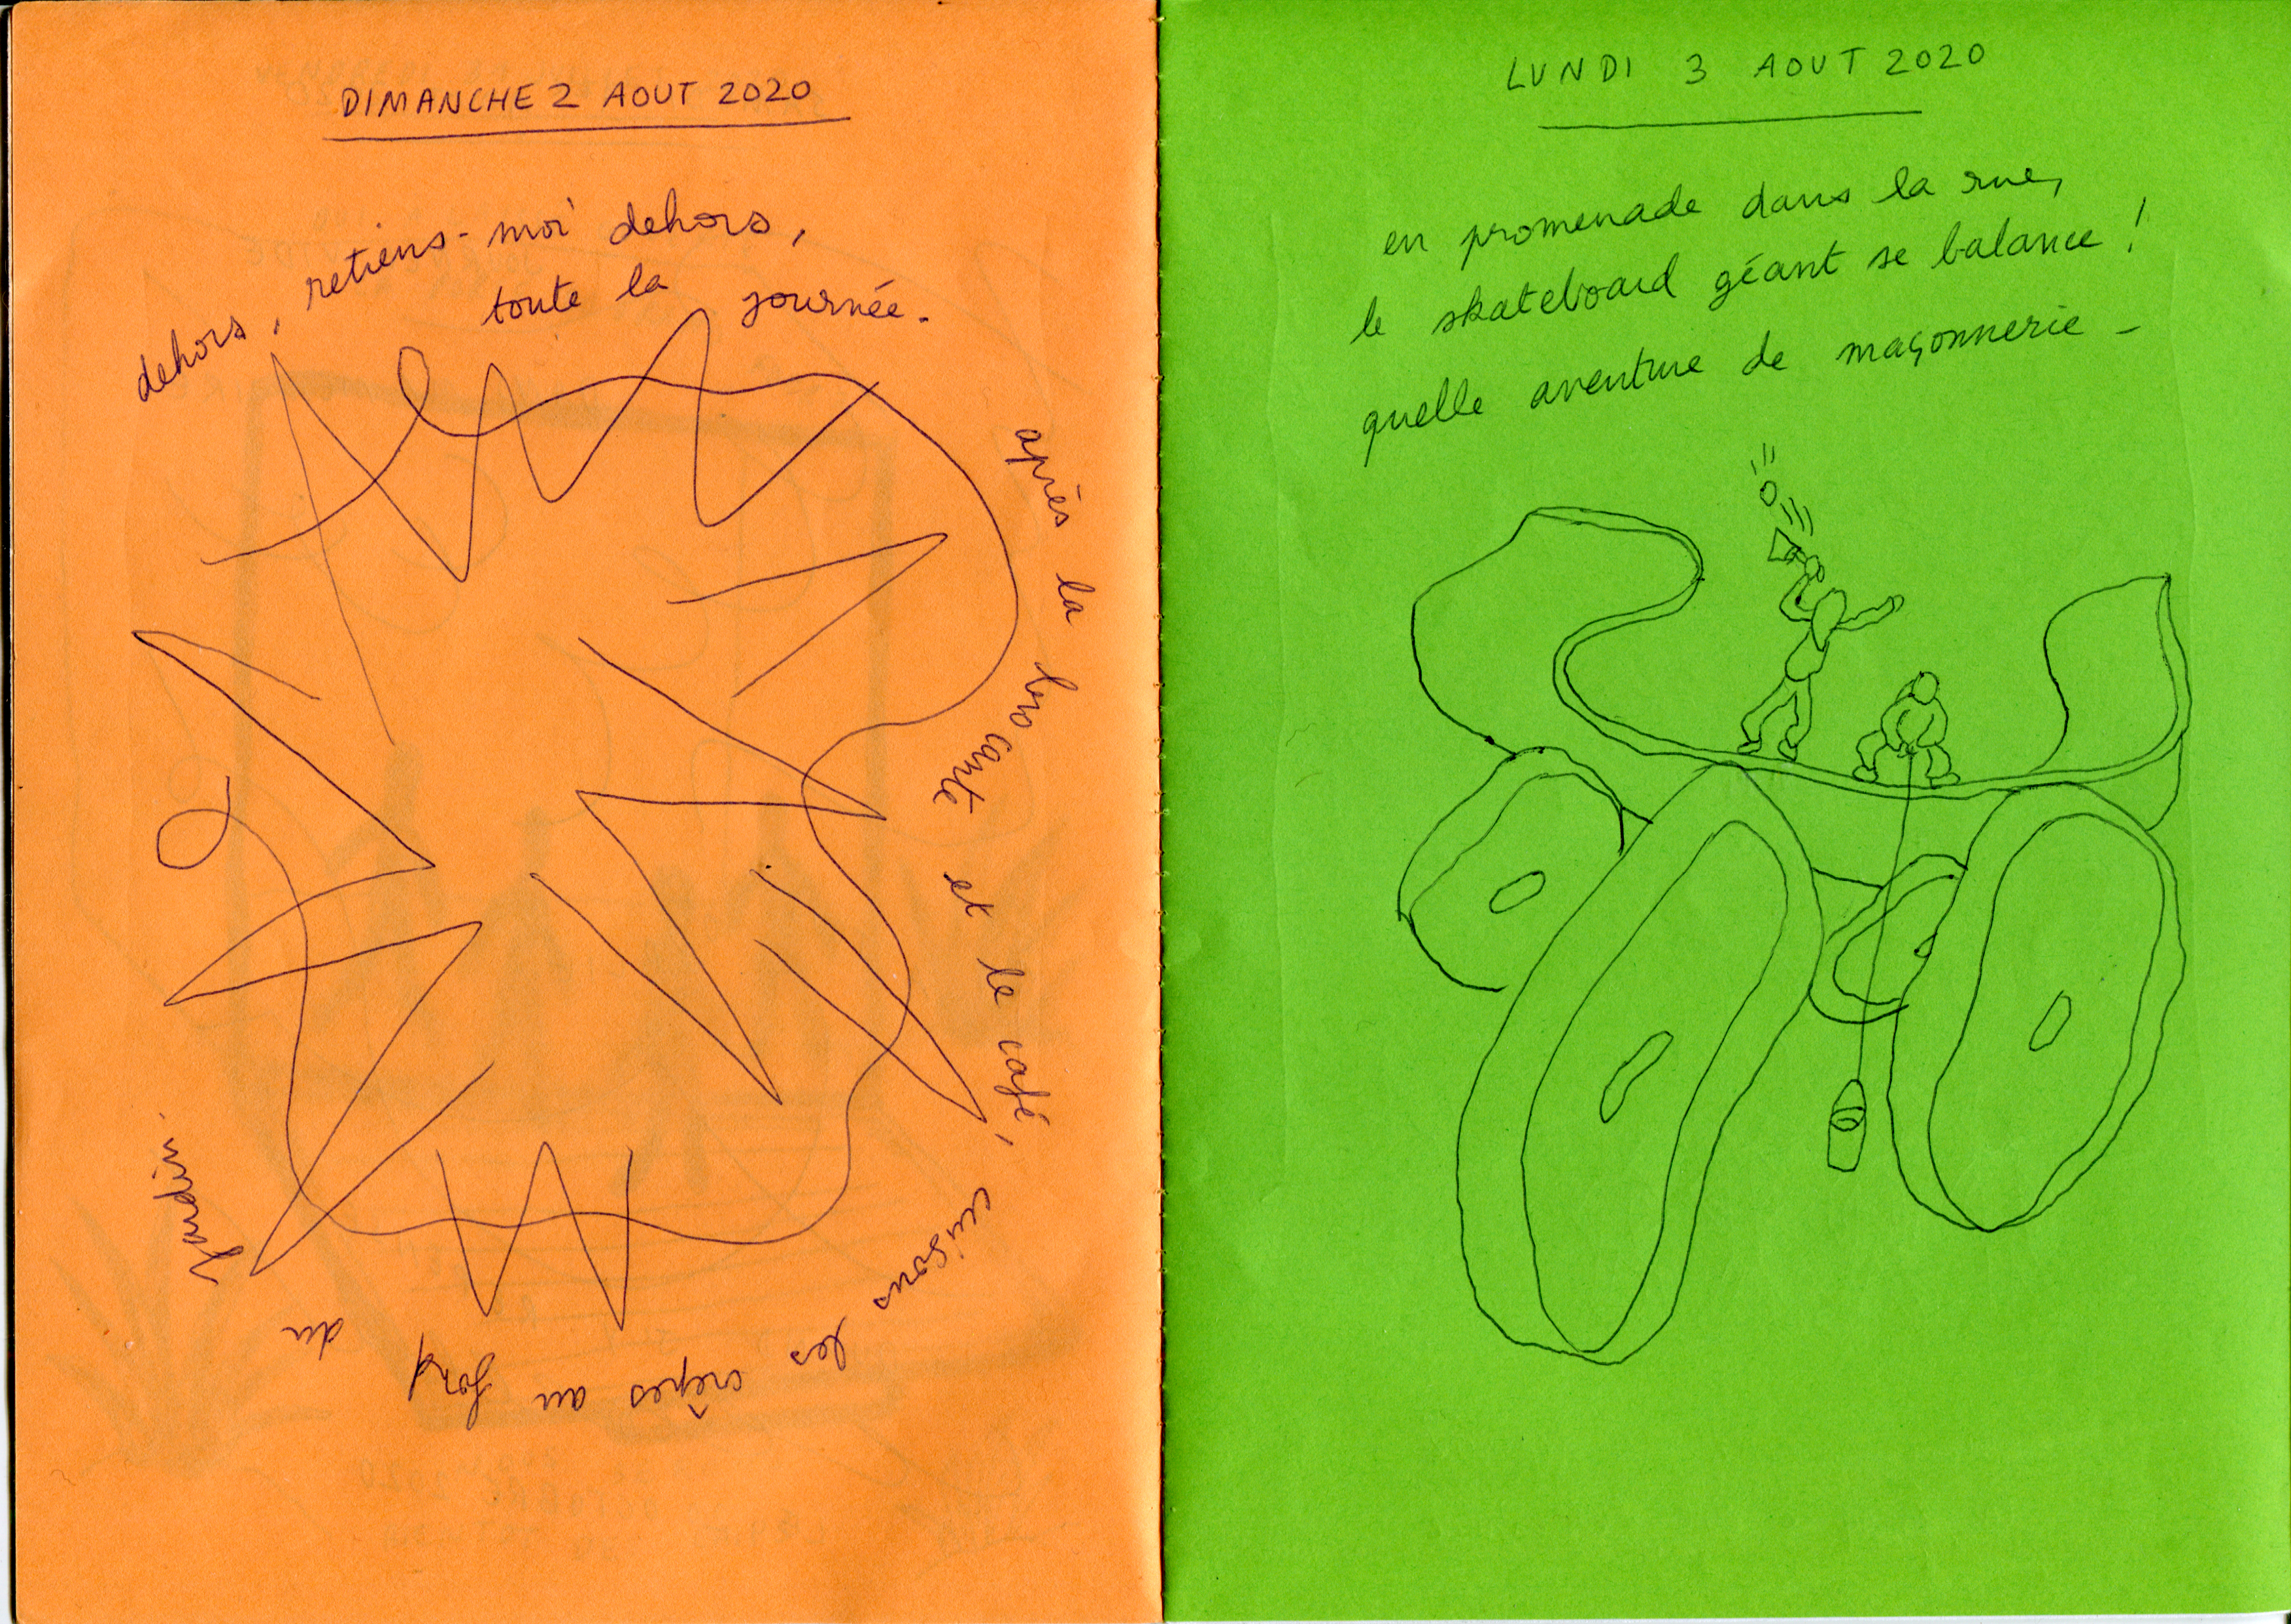 DIMANCHE 2 AOUT 2020
dehors, retiens-moi dehors,
toute la journée.
après la brocante et le café,
cuisons les crêpes au
du Jardin.
LUNDI 3 AOUT 2020
en promenade dans la rue,
le skateboard géant se balance !
quelle aventure de maçonnerie -